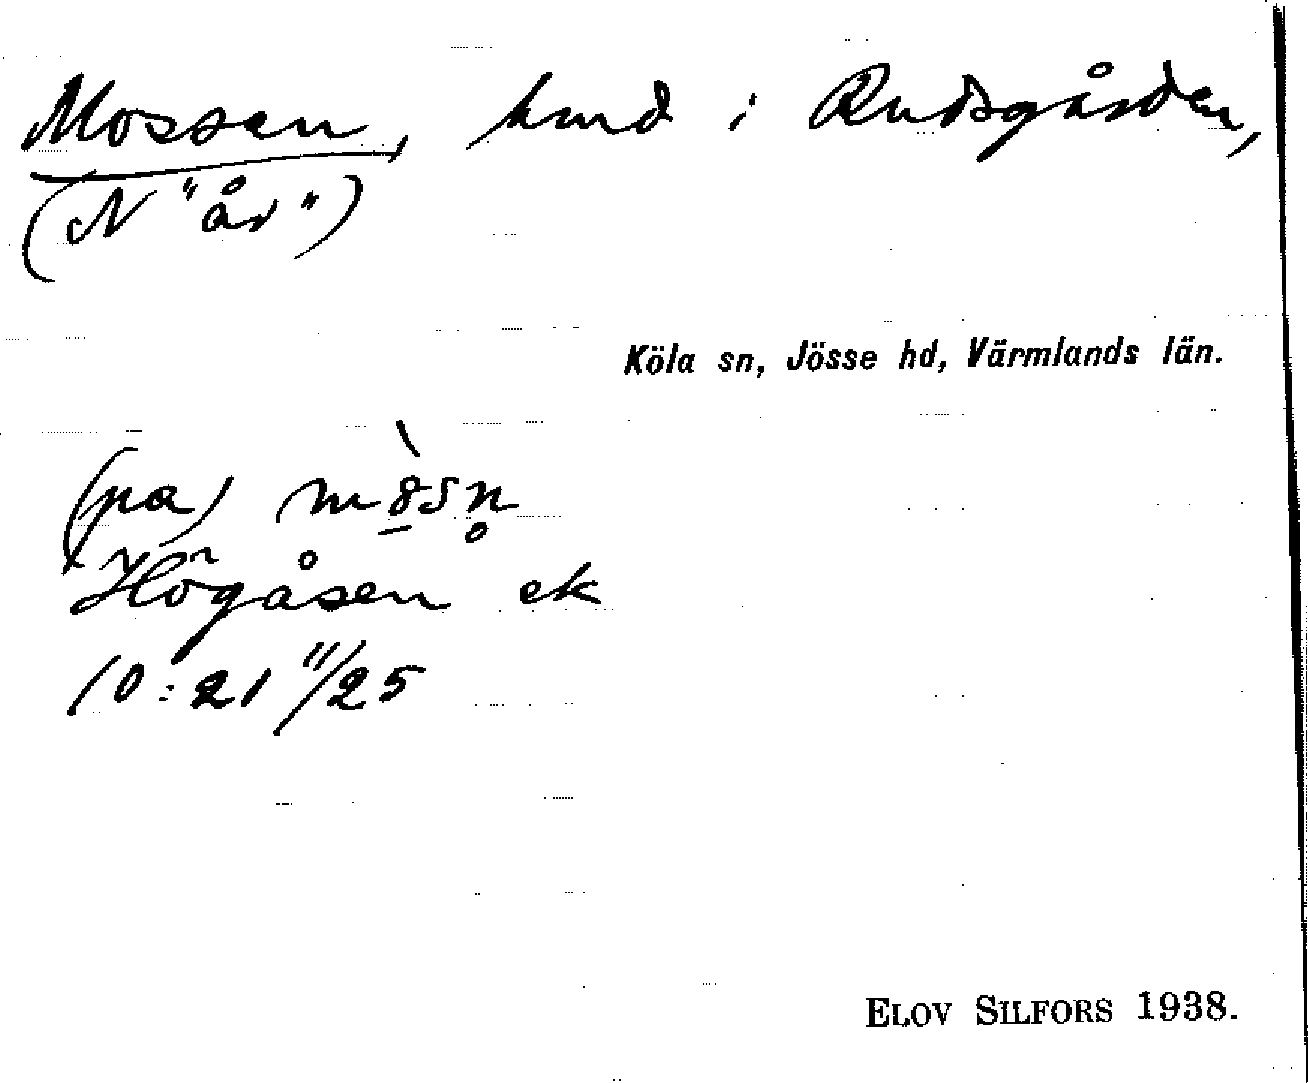 Mossen, hmd i Rudsgården,
(N "år")
Köla sn, Jösse hd, Värmlands län.
(pa) mò̱sn̥
Högåsen ek
10:21 11/25
ELOV SILFORS 1938.